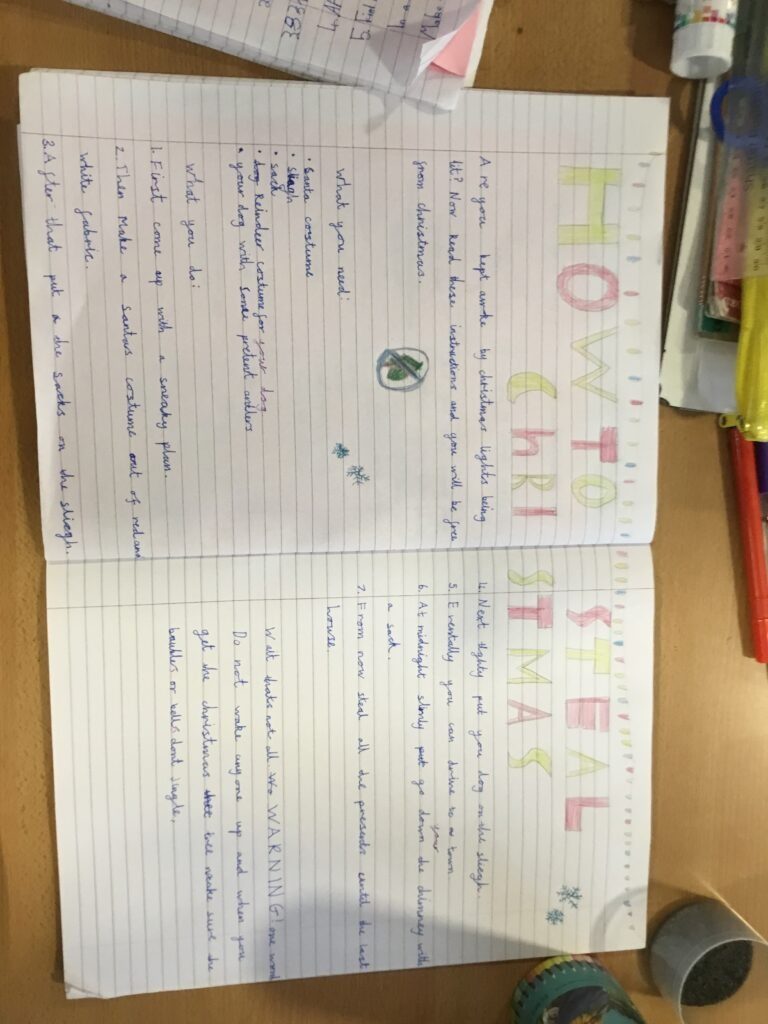 HOW TO STEAL
CHRISTMAS
Are you kept awke by christmas lights being
lit? Now Read these instructions and you will be free
from christmas.
What you need:
• Santa costume
• sleagh
• sack
• dog Reindeer costume for your dog
• your dog with some pretent antlers
What you do:
1. First come up with a sneaky plan.
2. Then Make a santas costume out of red and
white fabric.
3. After that put a the sacks on the sliegh.
4. Next tighty put you dog on the sliegh.
5. Eventally you can drive to a town.
6. At midnight slimly put go down the your chimney with
a sack.
7. From now steal all the presents until the last
house.
Wait thats not all. WARNING! one word
Do not wake any one up and when you
get the christmas tree make sure the
baubles or bells dont jingle.